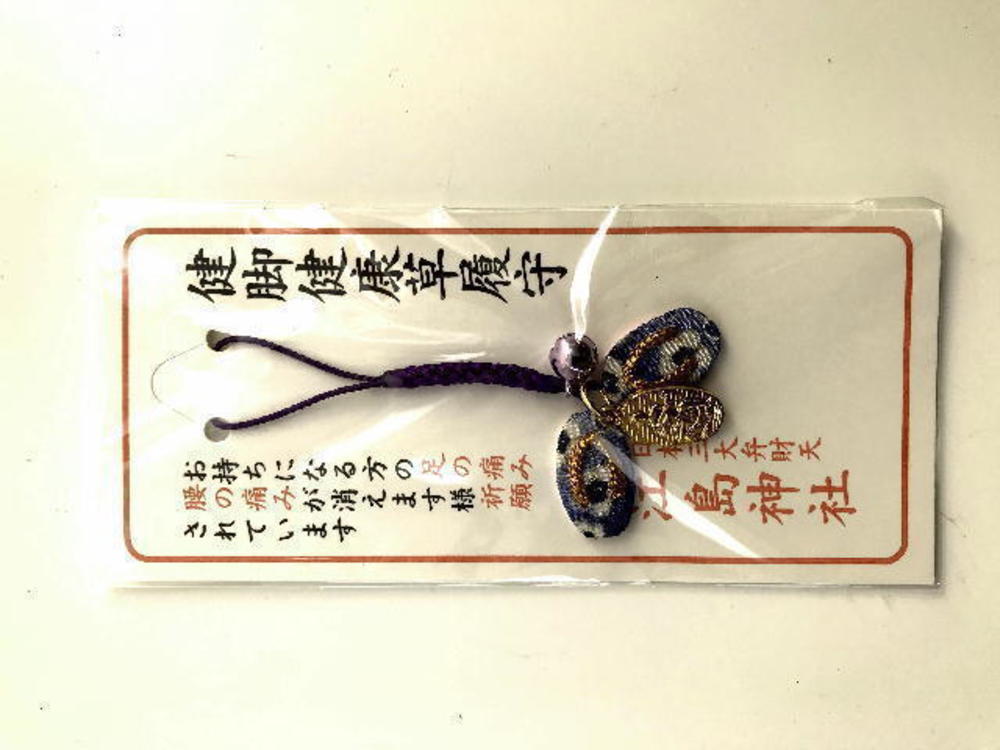 健脚健康草履守
お持ちになる方の足の痛み
腰の痛みが消えます様祈願
されています
日本三大弁財天
江島神社